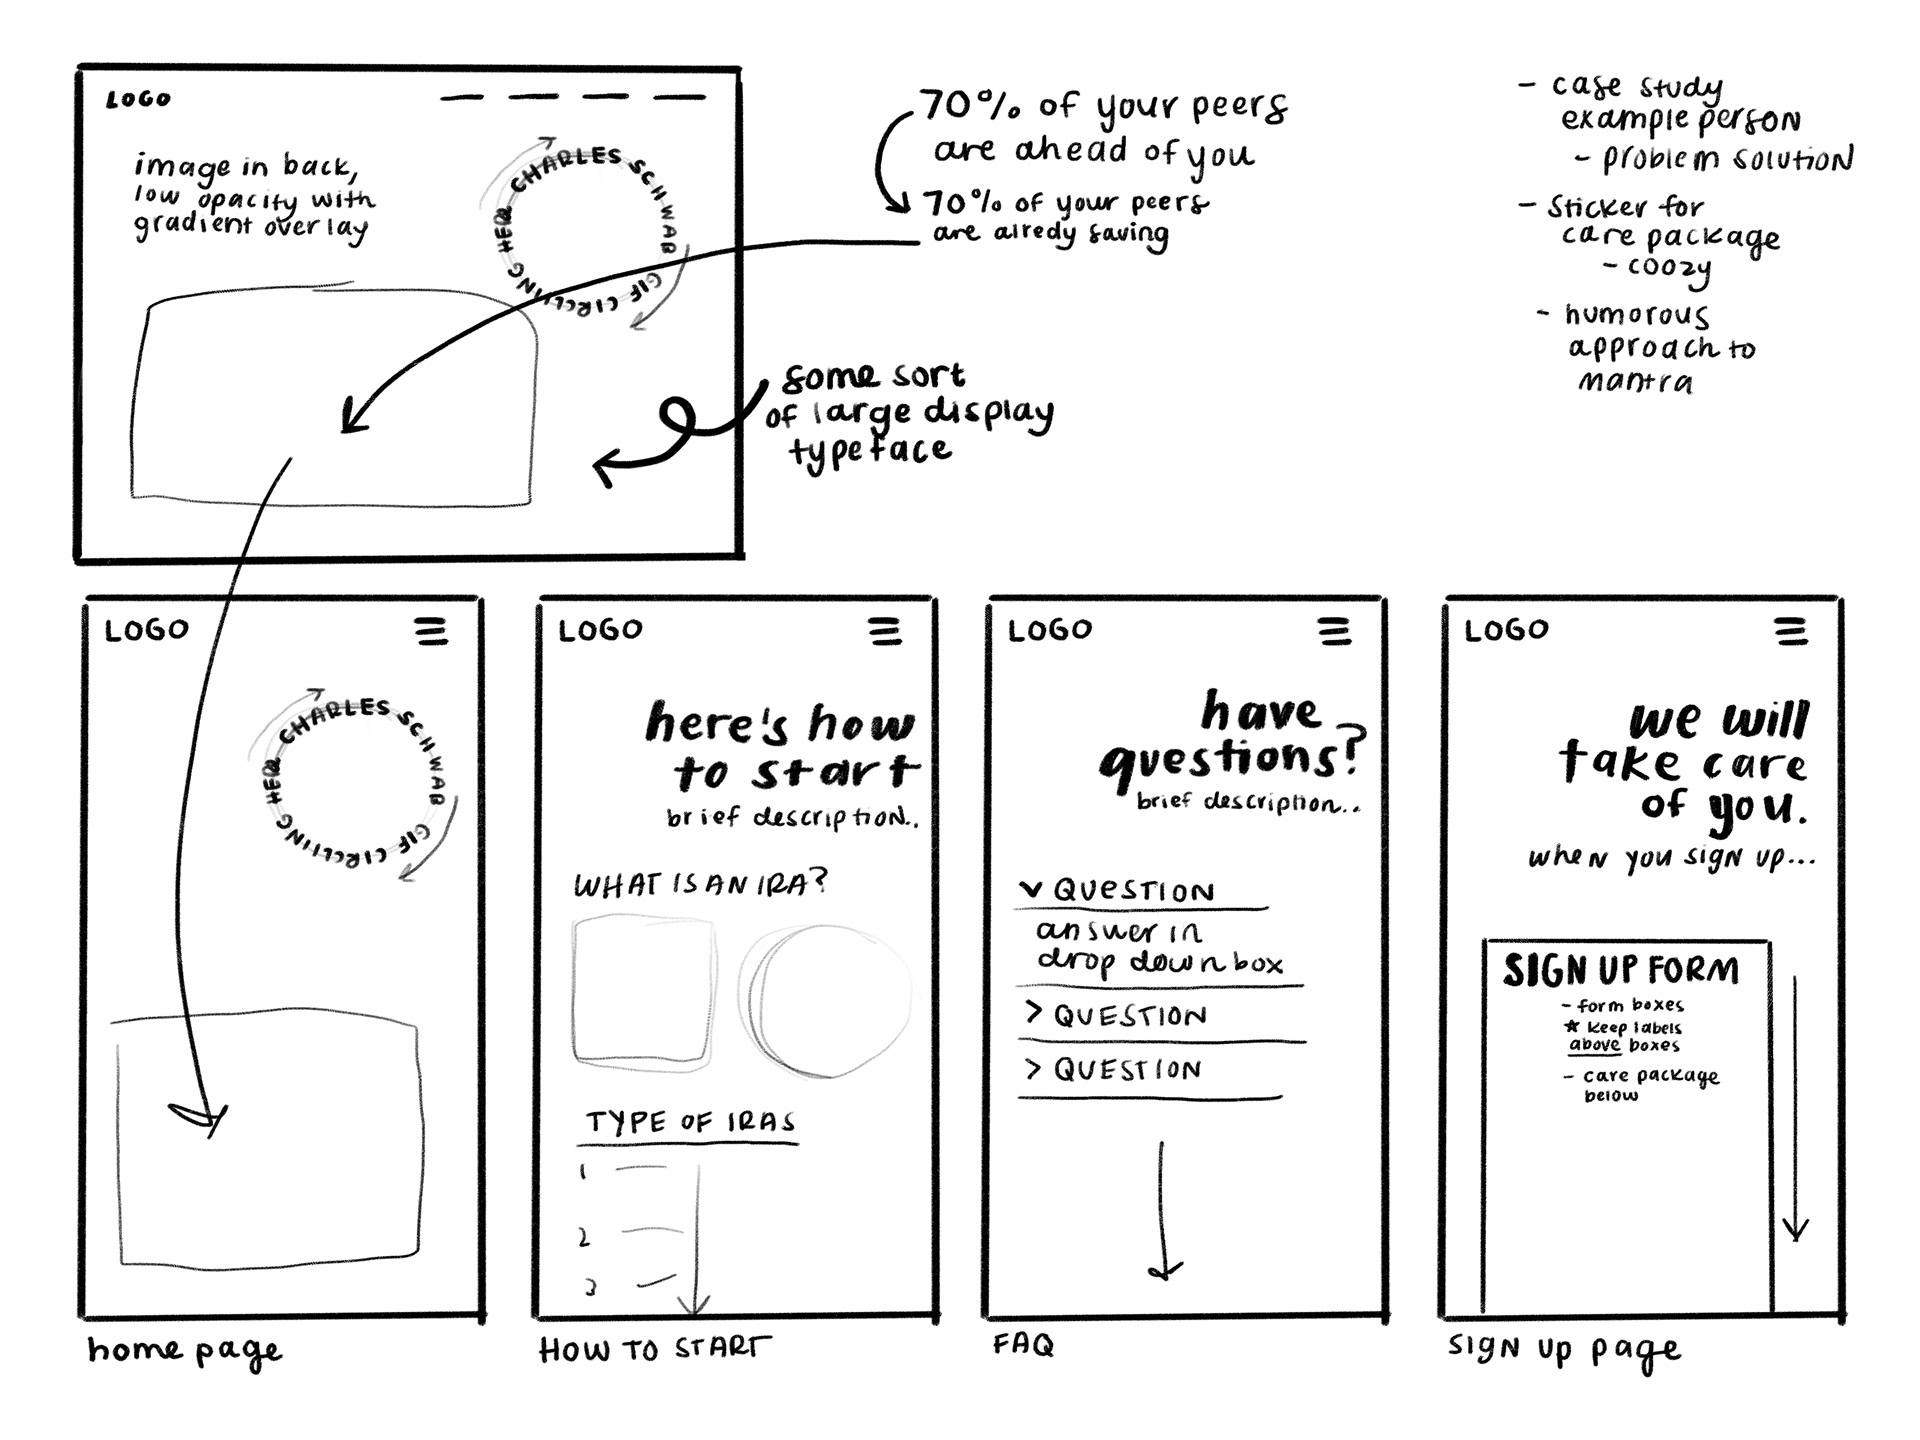 LOGO
image in back,
low opacity with
gradient overlay
CHARLES SCHWAB GIF CIRCLIING HERE
70% of your peers
are ahead of you
70% of your peers
are alredy saving
some sort
of large display
typeface
- case study
example person
- problem solution
- sticker for
care package
- coozy
- humorous
approach to
mantra
LOGO
CHARLES SCHWAB GIF CIRCLIING HERE
home page
LOGO
here's how
to start
brief description..
WHAT IS AN IRA?
TYPE OF IRAS
1
2
3
HOW TO START
LOGO
have
questions?
brief description..
QUESTION
answer in
drop down box
> QUESTION
> QUESTION
FAQ
LOGO
we will
take care
of you.
when you sign up...
SIGN UP FORM
- form boxes
★ keep labels
above boxes
- care package
below
sign up page